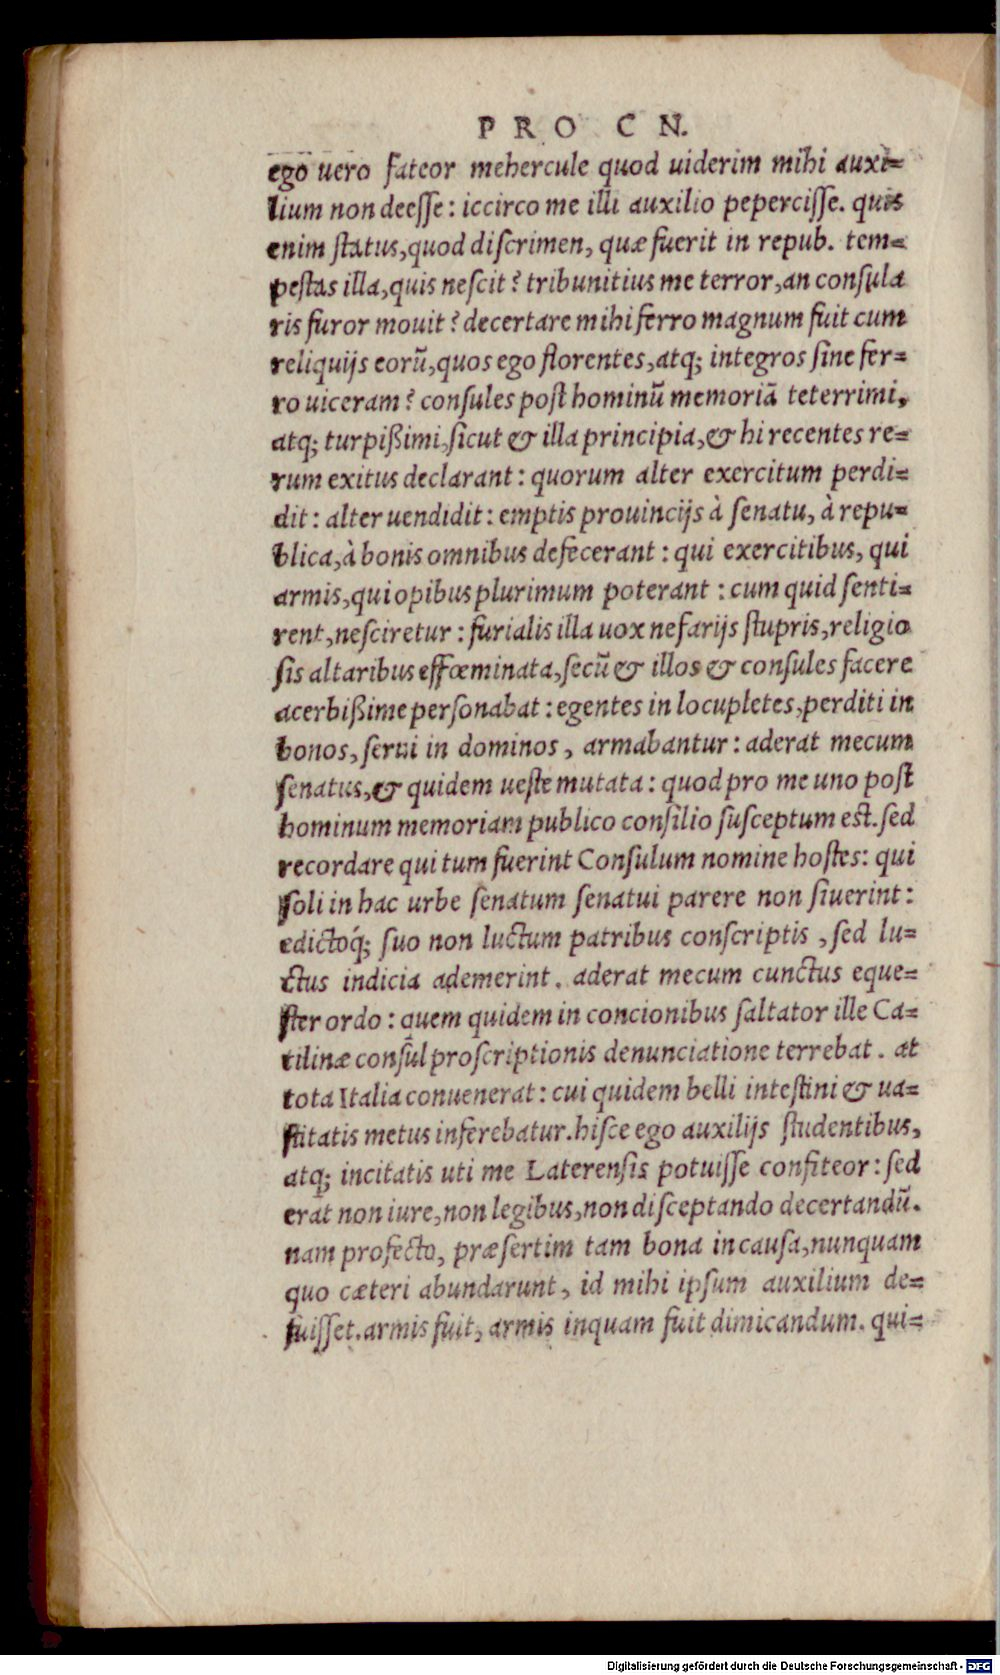 PRO CN.
ego uero fateor mehercule quod uiderim mihi auxi=
lium non deesse: iccirco me illi auxilio pepercisse. quis
enim status, quod discrimen, quæ fuerit in repub. tem=
pestas illa, quis nescit? tribunitius me terror, an consula
ris furor mouit? decertare mihi ferro magnum fuit cum
reliquijs eorũ, quos ego florentes, atq; integros sine fer=
ro uiceram? consules post hominũ memoriã teterrimi,
atq; turpißimi, sicut & illa principia, & hi recentes re=
rum exitus declarant: quorum alter exercitum perdi=
dit: alter uendidit: emptis prouincijs à senatu, à repu=
blica, à bonis omnibus defecerant: qui exercitibus, qui
armis, qui opibus plurimum poterant: cum quid senti=
rent, nesciretur: furialis illa uox nefarijs stupris, religio
sis altaribus effœminata, secũ & illos & consules facere
acerbißime personabat: egentes in locupletes, perditi in
bonos, serui in dominos, armabantur: aderat mecum
senatus, & quidem ueste mutata: quod pro me uno post
hominum memoriam publico consilio susceptum est. sed
recordare qui tum fuerint Consulum nomine hostes: qui
soli in hac urbe senatum senatui parere non siuerint:
edictoq́; suo non luctum patribus conscriptis, sed lu=
ctus indicia ademerint. aderat mecum cunctus eque=
ster ordo: quem quidem in concionibus saltator ille Ca=
tilinæ consul proscriptionis denunciatione terrebat. at
tota Italia conuenerat: cui quidem belli intestini & ua=
stitatis metus inferebatur. hisce ego auxilijs studentibus,
atq; incitatis uti me Laterensis potuisse confiteor: sed
erat non iure, non legibus, non disceptando decertandũ.
nam profecto, præsertim tam bona in causa, nunquam
quo cæteri abundarunt, id mihi ipsum auxilium de=
fuisset. armis fuit, armis inquam fuit dimicandum. qui=
Digitalisierung gefördert durch die Deutsche Forschungsgemeinschaft - DFG